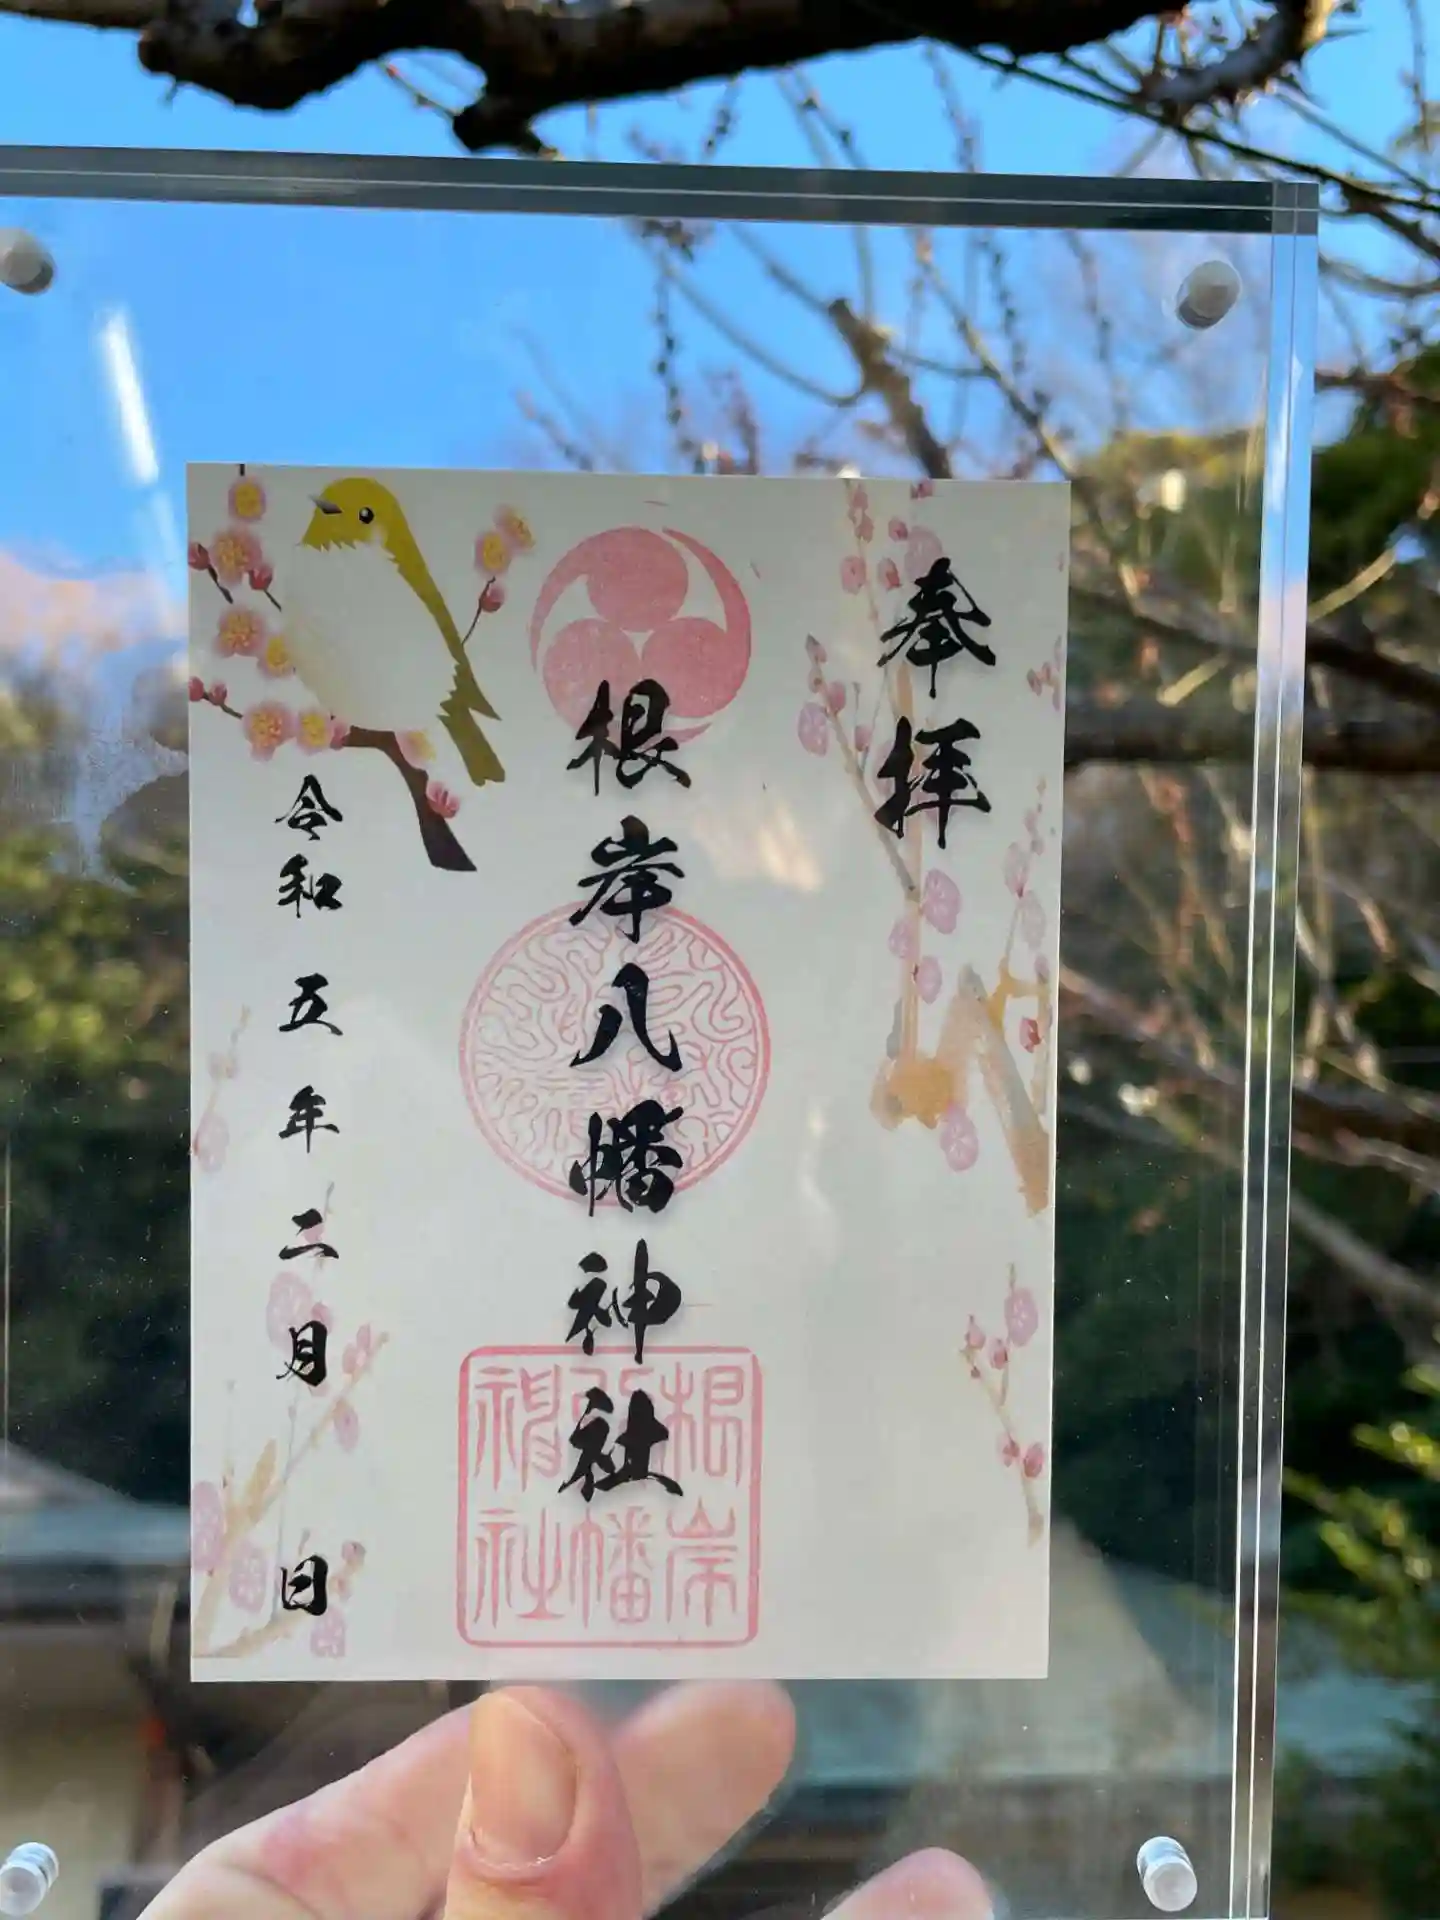 奉拝
根岸八幡神社
令和五年二月 日
根岸八幡神社